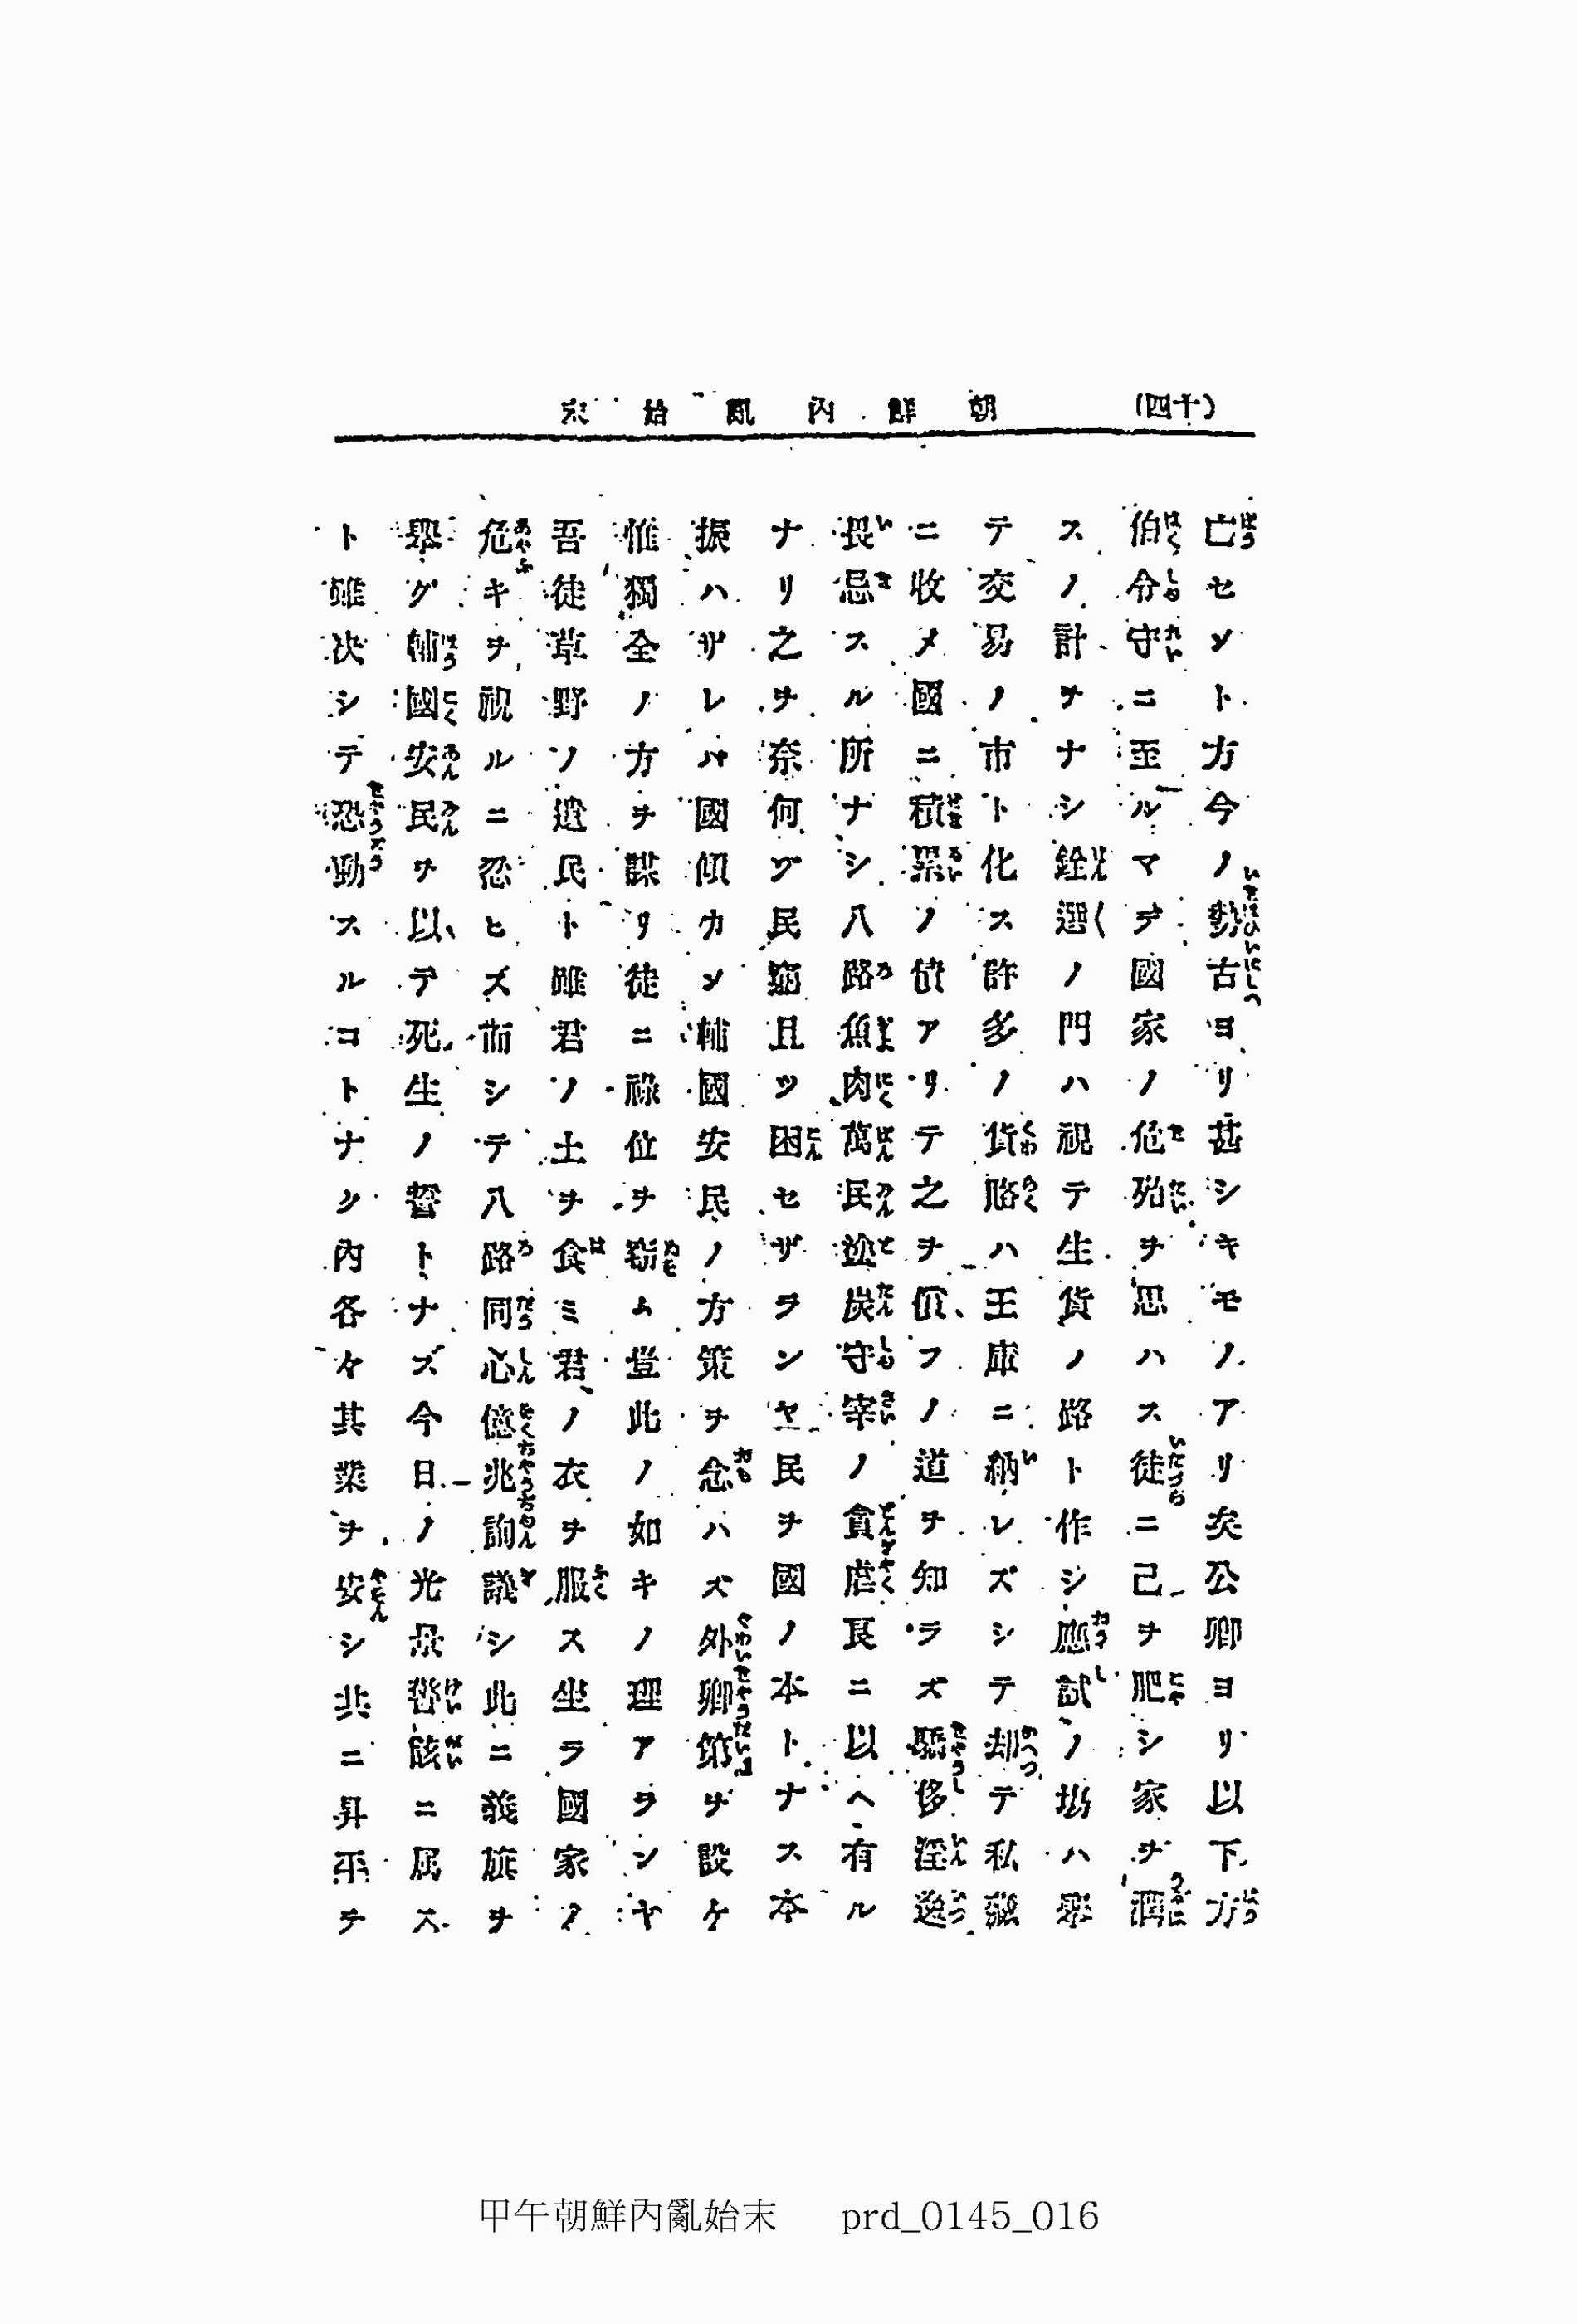 (四十)
朝鮮內亂始末
亡セント方今ノ勢古ヨリ甚シキモノアリ矣公卿ヨリ以下方
伯令守ニ至ルマデ國家ノ危殆ヲ思ハス徒ニ己ヲ肥シ家ヲ潤
スノ計ヲナシ銓選ノ門ハ視テ生貨ノ路ト作シ應試ノ場ハ舉
テ交易ノ市ト化ス許多ノ貨賂ハ王庫ニ納レズシテ却テ私藏
ニ收メ國ニ積累ノ債アリテ之ヲ償フノ道ヲ知ラズ驕侈淫逸
畏忌スル所ナシ八路魚肉萬民塗炭守宰ノ貪虐良ニ以ヘ有ル
ナリ之ヲ奈何ゾ民窮且ツ困セザランヤ民ヲ國ノ本トナス本
振ハザレバ國傾カン輔國安民ノ方策ヲ念ハズ外鄉第ヲ設ケ
惟獨全ノ方ヲ謀リ徒ニ祿位ヲ竊ム豈此ノ如キノ理アランヤ
吾徒草野ノ遺民ト雖君ノ土ヲ食ミ君ノ衣ヲ服ス坐ラ國家ノ
危キヲ視ルニ忍ビズ而シテ八路同心億兆詢議シ此ニ義旗ヲ
舉ゲ輔國安民ヲ以テ死生ノ誓トナズ今日ノ光景警駭ニ属ス
ト雖决シテ恐動スルコトナク內各々其業ヲ安シ共ニ昇平ヲ
甲午朝鮮內亂始末 prd_0145_016